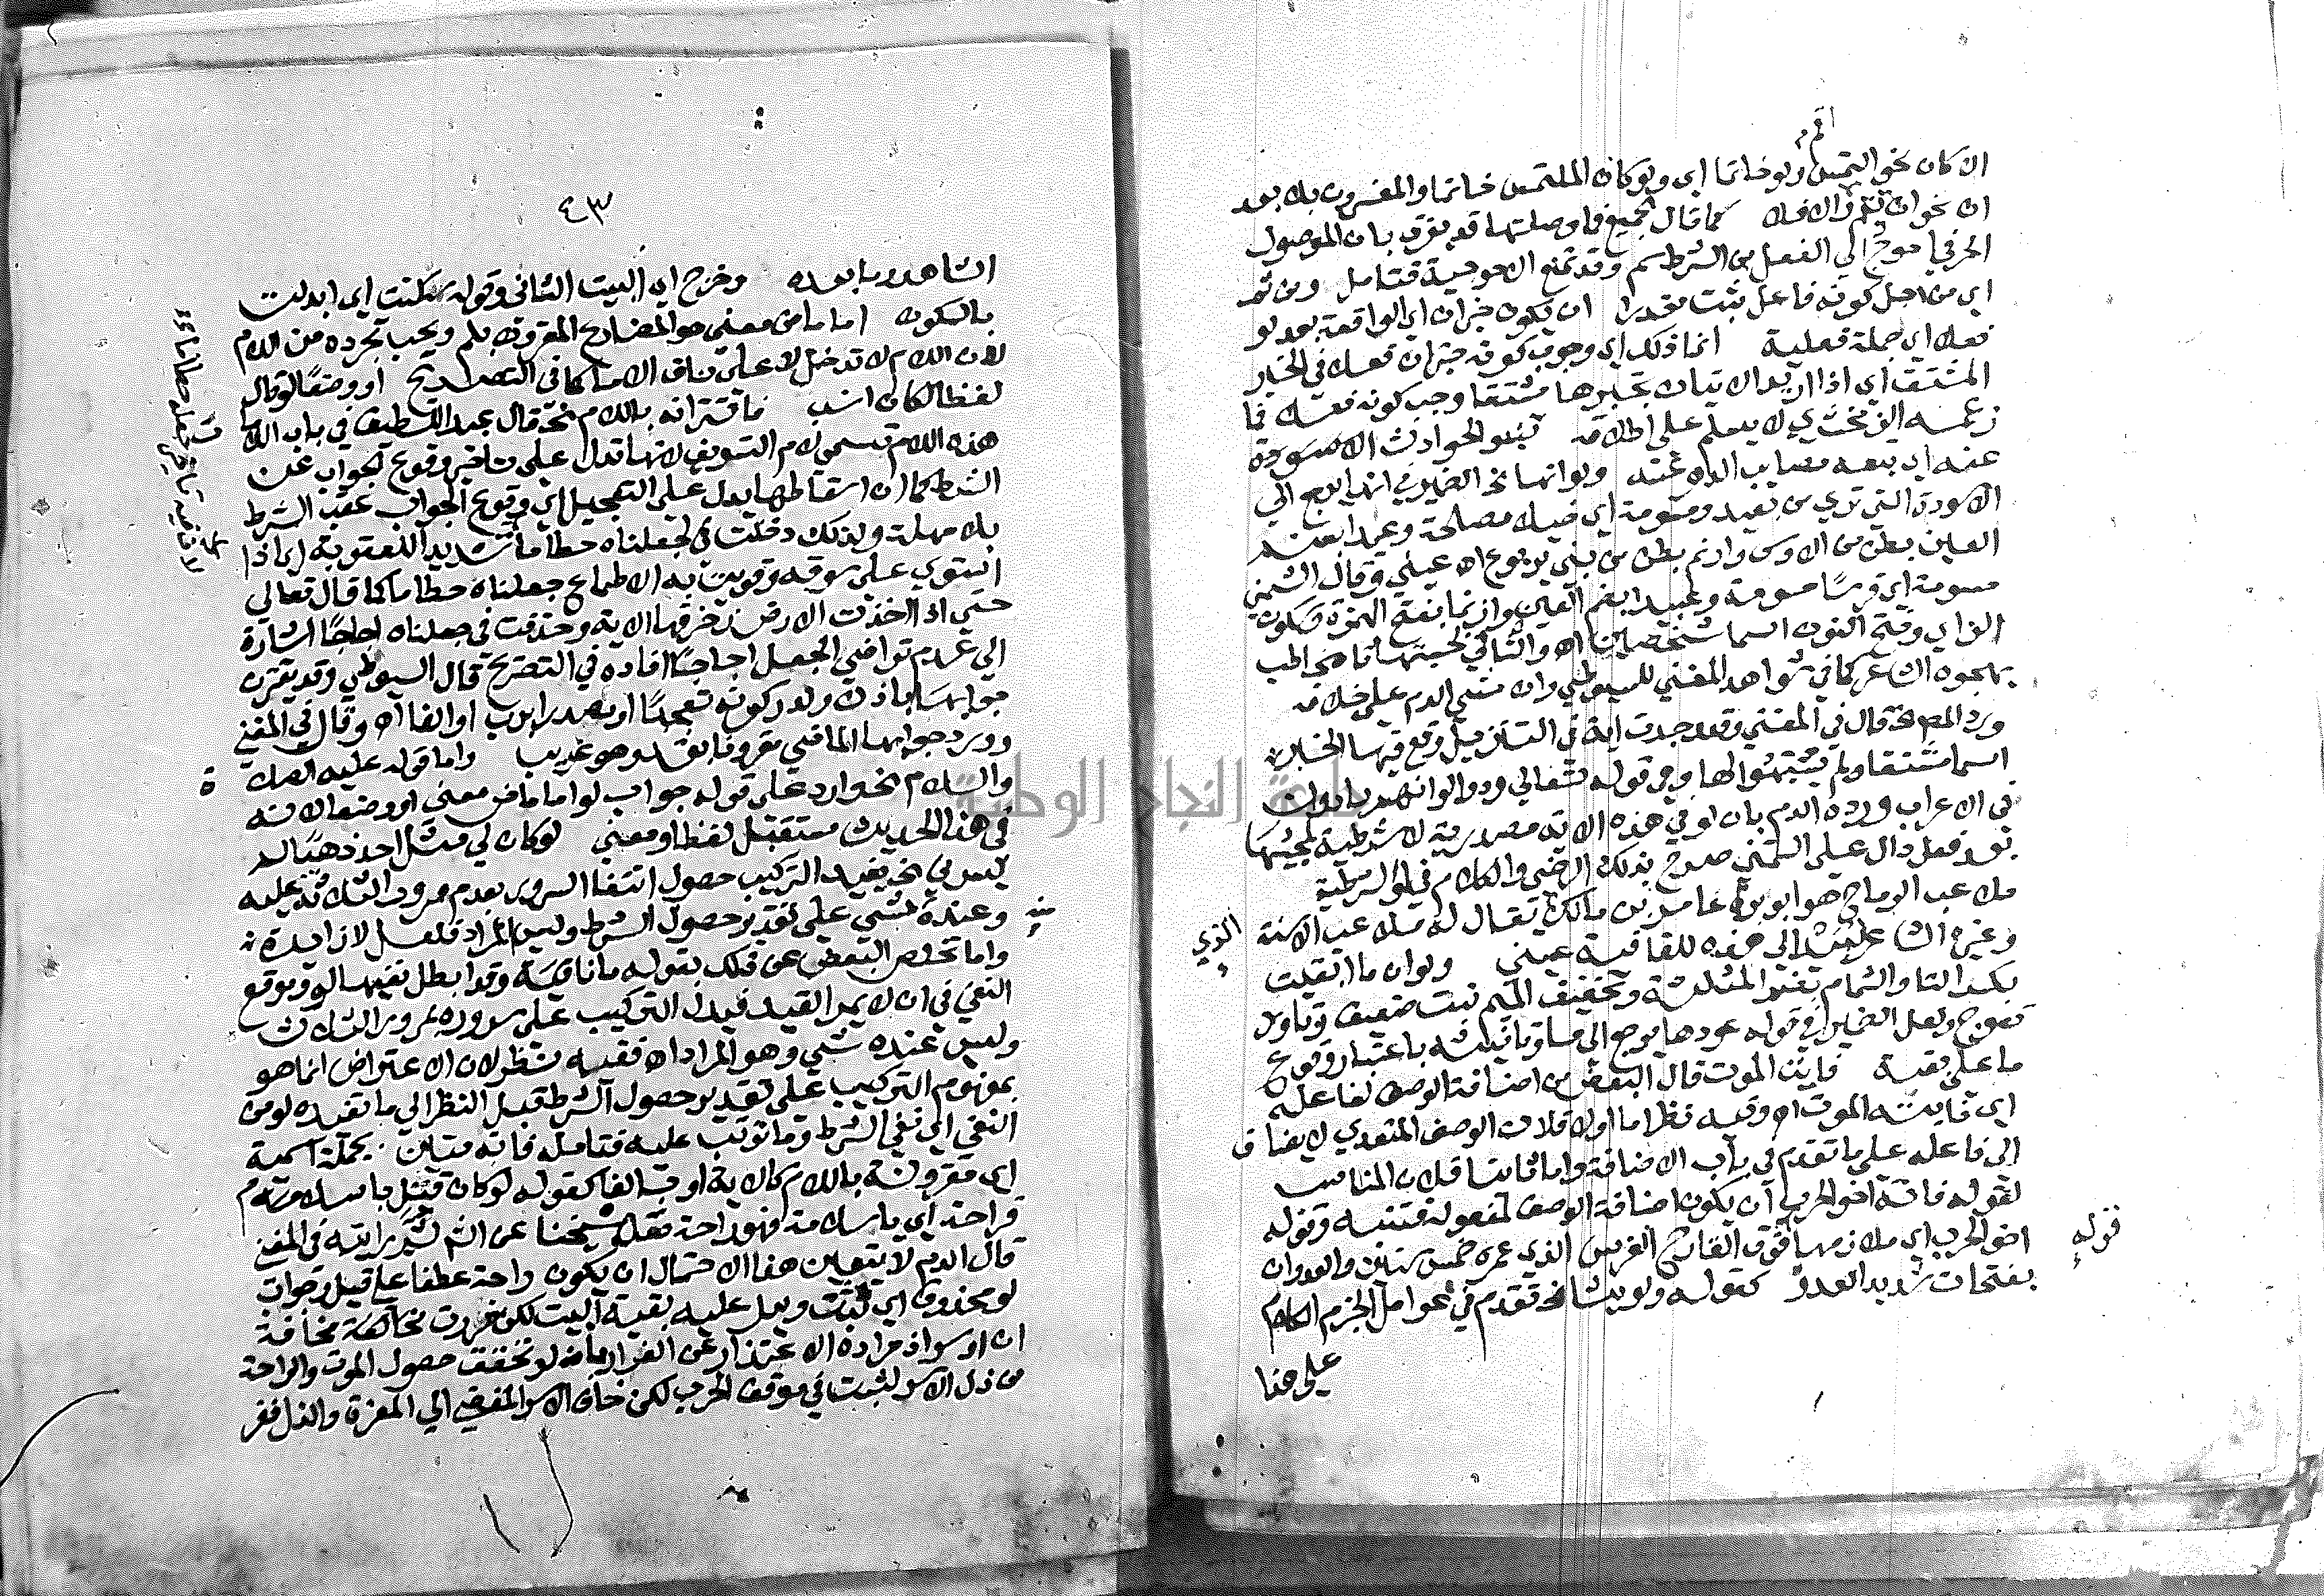 الا كان نحو التمس ولو خاتما اي ولو كان الملتمس خاتما والمقرون بلا بعد
ان نحو ان الا فلا كما قال الجميع في ما وصلتها قد يفرق بان الموصول
الحرفي احوج الي الفعل من الشرط سم وقد تمنع الاحوجية فتامل ومن ثم
اي من اجل كونه فاعل بثبت مقدرا ان يكون خبر ان اي الواقعة بعد لو
فعلا اي جملة فعلية انما ذلك اي وجوب كونه خبر ان فعلا في الخبر
المشتق اي اذا اريد الاتيان بخبرها مشتقا وجب كونه فعلا فما
زعمه الزمخشري لا يعلم على اطلاقه تنبو الحوادث
عنه اي بعد مصايب الدهر عنه ولو انها الخ الضمير في انها يرجع الي
الاسودة التي تري من بعيد ومسومة اي خيلا مصلحة وعبيدا بضم
العين بطن من الاوس وازنم بطن من بني يربوع اه عيني وقال الشمني
مسومة اي فرسا مسومة وعبيدا بضم العين وازنما بفتح الهمزة وسكون
الزاي وفتح النون اسما شخصين اه والتا في لحسبتها تا مخاطب
يهجوه الشاعر كما في شواهد المغني للسيوطي وان مشى الدم على خلافه
ورد المص قال في المغني وقد وجدت اية في التنزيل وقع فيها الخبر
اسما مشتقا ولم يتنبهوا لها وهي قوله تعالي ودوا لو انهم بادون
في الاعراب ورده الدم بان لو في هذه الاية مصدرية لا شرطية لمجيئها
بعد فعل دال على التمني صرح بذلك الرضي والكلام في لو الشرطية
ملاعب الرماح هو ابو براء عامر بن مالك يقال له ملاعب الاسنة الذي
وغيره الشاعر الي هذه للقافية عيني ولو ان ما ابقيت
بكسر التا والثمام بضم المثلثة وتخفيف الميم نبت ضعيف وتاود
تعوج ولعل الضمير في قوله عودها يرجع الى ما وتانيثه باعتبار وقوع
ما على بقية فايت الموت قال البعض من اضافة الوصف لفاعله
اي فايته الموت اه وفيه نظر اما اولا فلان الوصف المتعدي لا يضاف
الى فاعله على ما تقدم في باب الاضافة واما ثانيا فلان المناسب
لقوله فاته اخو الحرب ان يكون اضافة الوصف لمفعوله فتنبه وقوله
قوله
اخو الحرب اي ملازمها فوق القارح الفرس الذي عمره خمس سنين والعدوان
بفتحات شديد العدو كقوله ولو يشا الخ تقدم في عوامل الجزم الكلام
على هذا
٤٣
الشاهد ما بعده وخرج اي البيت الثاني وقوله سكنت اي ابدلت
بالسكون اما ماض معنى هو المضارع المقرون بلم ويجب تجرده من اللام
لان اللام لا تدخل على ناف الا ما كما في التصريح او وضعا لو قال
لفظا لكان انسب فاقترانه باللام الخ قال عبد اللطيف في باب اللام
هذه اللام تسمى لام التسويف لانها تدل على تاخير وقوع الجواب عن
الشرط كما ان اسقاطها يدل على التعجيل اي وقوع الجواب عقب الشرط
بلا مهلة ولذلك دخلت في لجعلناه حطاما تشديدا للعقوبة اي اذا
استوي على سوقه وقويت به الاطماع جعلناه حطاما كما قال تعالي
حتى اذا اخذت الارض زخرفها الاية وحذفت في جعلناه اجاجا اشارة
الي عدم تراخي الجعل اجاجا افاده في التصريح قال السيوطي وقد يقترن
جوابها باذن ولو ركونه تعجبا او مصدرا برب او الفا اه وقال في المغني
وورد جوابها الماضي مقرونا بقد وهو غريب واما قوله عليه الصلاة
والسلام الخ وارد على قوله جواب لو اما ماض معنى او وضعا لانه
في هذا الحديث مستقبل لفظا ومعنى لو كان لي مثل احد ذهبا
يسرني الخ يفيد التركيب حصول انتفا السرور بعدم مرور الثلاث عليه
وعنده منه شي على تقدير حصول الشرط وليس المراد فلعل لا زايدة
واما تخلص البعض عن ذلك بقوله ما نافية وقد ابطل نفيها لو
النفي في ان لا يمر القيد فيدل التركيب على سروره بمرور الثلاث
وليس عنده شي وهو المراد اه ففيه نظر لان الاعتراض انما هو
بمفهوم التركيب على تقدير حصول الشرط قبل النظر الى ما تفيده لو من
النفي اي نفي الشرط وما ترتب عليه فتامله فانه متين بجملة اسمية
اي مقرونة باللام كالاية او بالفا كقوله لو كان قتل يا سلام
فراحة اي يا سلامة فهو راحة نقله شيخنا عن الشم ثم رايته في المغني
قال الدم لا يتعين هذا الاحتمال ان يكون راحة عطفا على قتل وجواب
لو محذوف اي لثبت ويدل عليه بقية البيت لكن فررت مخافة
ان اوسر اذ مراده الاعتذار عن الفرار بانه لو تحقق حصول الموت والراحة
من ذل الاسر لثبت في موقف الحرب لكن خاف الاسر المفضي الي المعرة والذل ففر